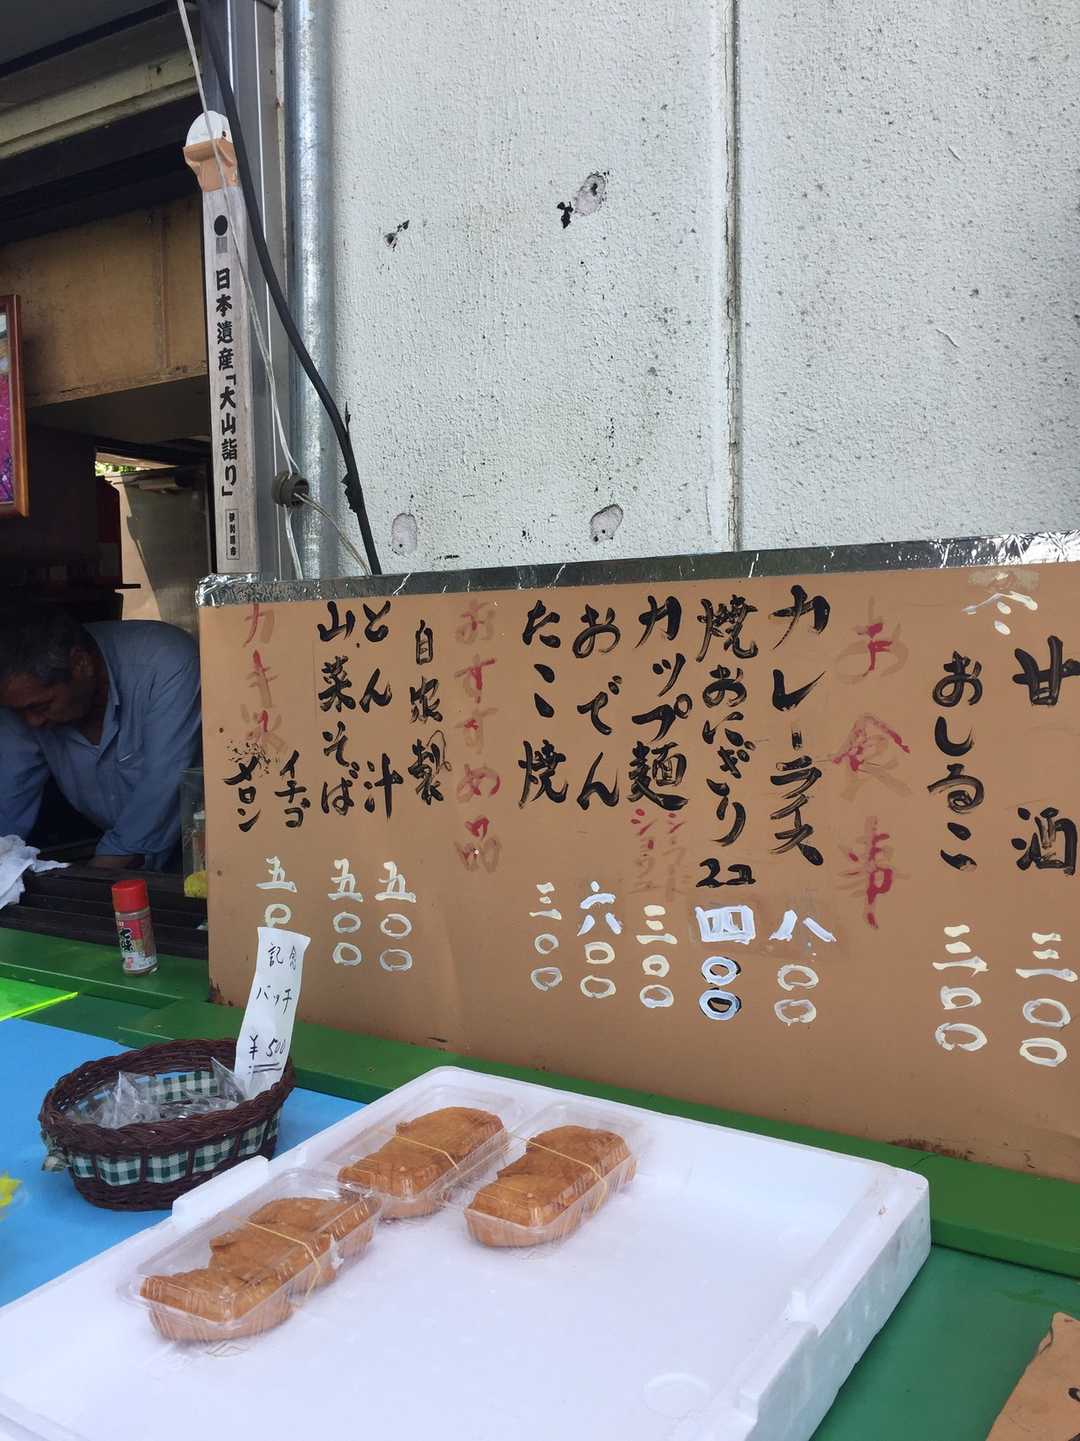 日本遺産「大山詣り」
伊勢原市
冬
甘酒 三〇〇
おしるこ 三〇〇
お食事
カレーライス 八〇〇
焼おにぎり 2コ 四〇〇
カップ麺 三〇〇
おでん 六〇〇
たこ焼 三〇〇
おすすめ品
自家製
とん汁 五〇〇
山菜そば 五〇〇
カキ氷
イチゴ
メロン
五〇
記念
バッチ
¥500
七味